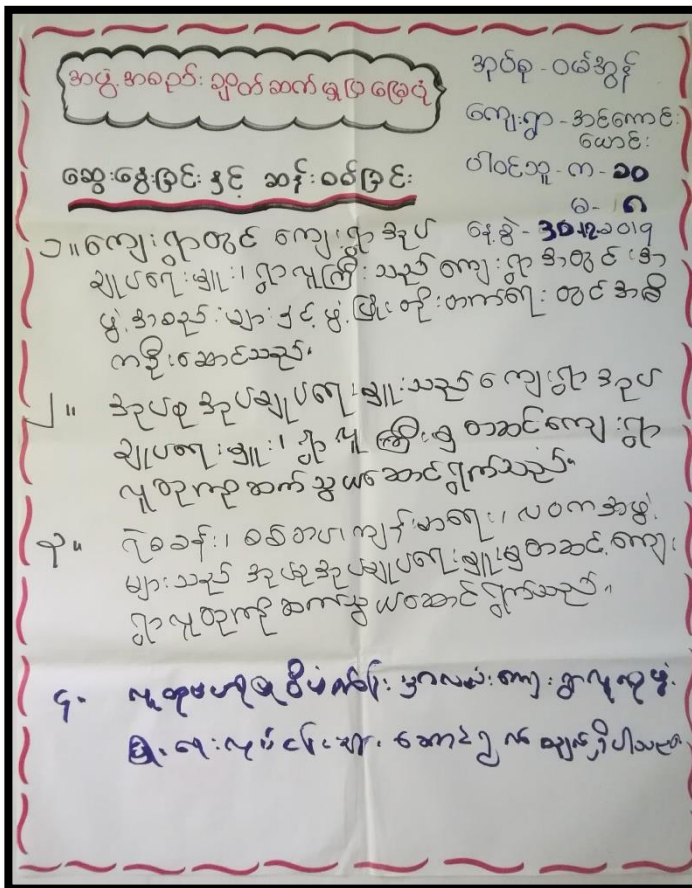 အဖွဲ့အစည်း ချိတ်ဆက်မှုပြမြေပုံ
အုပ်စု - ဝမ်အွန်
ကျေးရွာ - အင်ကောင်း
ယောင်း
ပါဝင်သူ - က - ၁၀
မ - ၈
နေ့စွဲ - 30.12.2019
ဆွေးနွေးခြင်း နှင့် ဆန်းစစ်ခြင်း
၁။ ကျေးရွာတွင် ကျေးရွာအုပ်
ချုပ်ရေးမှူး၊ ရွာလူကြီးသည် ကျေးရွာအတွင်း အ
ဖွဲ့အစည်းများနှင့် ဖွံ့ဖြိုးတိုးတက်ရေးတွင် အဓိ
ကဦးဆောင်သည်။
၂။ အုပ်စုအုပ်ချုပ်ရေးမှူးသည် ကျေးရွာအုပ်
ချုပ်ရေးမှူး၊ ရွာလူကြီးမှ တဆင့်ကျေးရွာ
လူထုကဥိုဆက်သွယ်ဆောင်ရွက်သည်။
၃။ ရဲစခန်း၊ စစ်တပ်၊ ကျန်းမာရေး၊ လဝကအဖွဲ့
များသည် အုပ်စုအုပ်ချုပ်ရေးမှူးမှတဆင့် ကျေး
ရွာလူထုကို ဆက်သွယ်ဆောင်ရွက်သည်။
၄။ လူထုဗဟိုပြုစီမံကိန်းမှာလည်းကျေးရွာလူထုဖွံ့
ဖြိုးရေးလုပ်ငန်းများ ဆောင်ရွက်လျက်ရှိပါသည်။